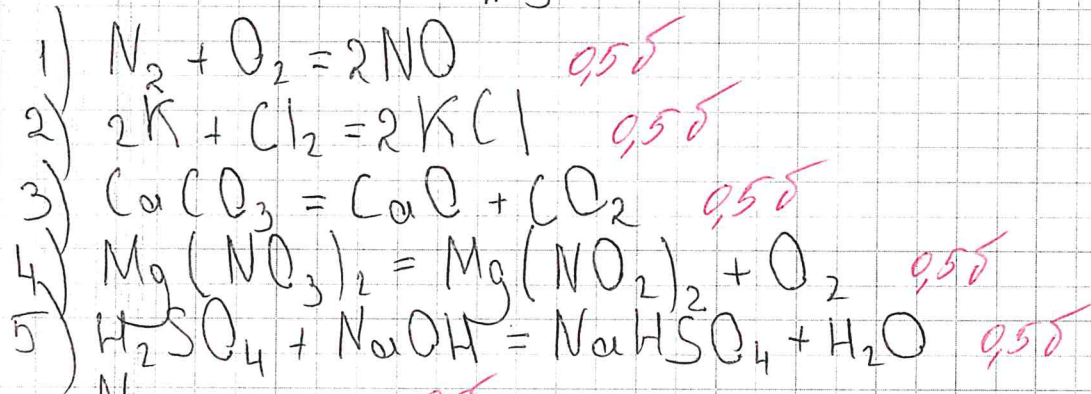 1) N₂ + O₂ = 2NO 0,5б
2) 2K + Cl₂ = 2KCl 0,5б
3) CaCO₃ = CaO + CO₂ 0,5б
4) Mg(NO₃)₂ = Mg(NO₂)₂ + O₂ 0,5б
5) H₂SO₄ + NaOH = NaHSO₄ + H₂O 0,5б